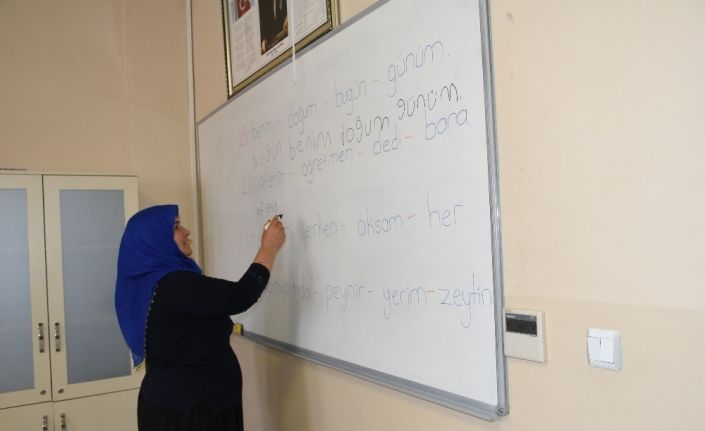 benim - doğum - bugün - günüm.
bugün benim doğum günüm.
aferin - öğretmen - dedi - bana
afer
erken - akşam - her
peynir - yerim - zeytin